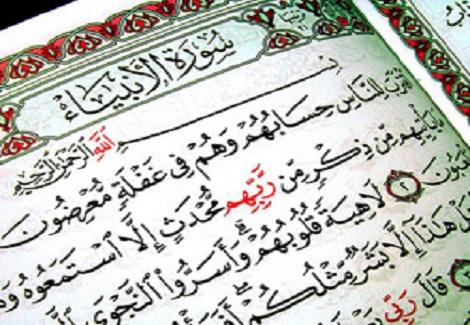 سُورَةُ الأَنبِيَاءِ
بِسْـــمِ اللَّهِ الرَّحْمَٰنِ الرَّحِيمِ
لِلنَّاسِ حِسَابُهُمْ وَهُمْ فِي غَفْلَةٍ مُّعْرِضُونَ
يَأْتِيهِم مِّن ذِكْرٍ مِّن رَّبِّهِم مُّحْدَثٍ إِلَّا ٱسْتَمَعُوهُ
٢ لَاهِيَةً قُلُوبُهُمْ وَأَسَرُّوا۟ ٱلنَّجْوَى
هَٰذَآ إِلَّا بَشَرٌ مِّثْلُكُمْ
قَالَ رَبِّي